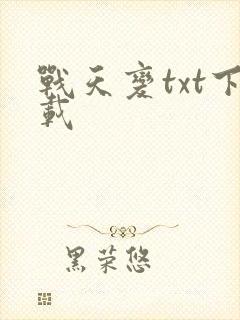 戰天變txt下
載
黑荣悠